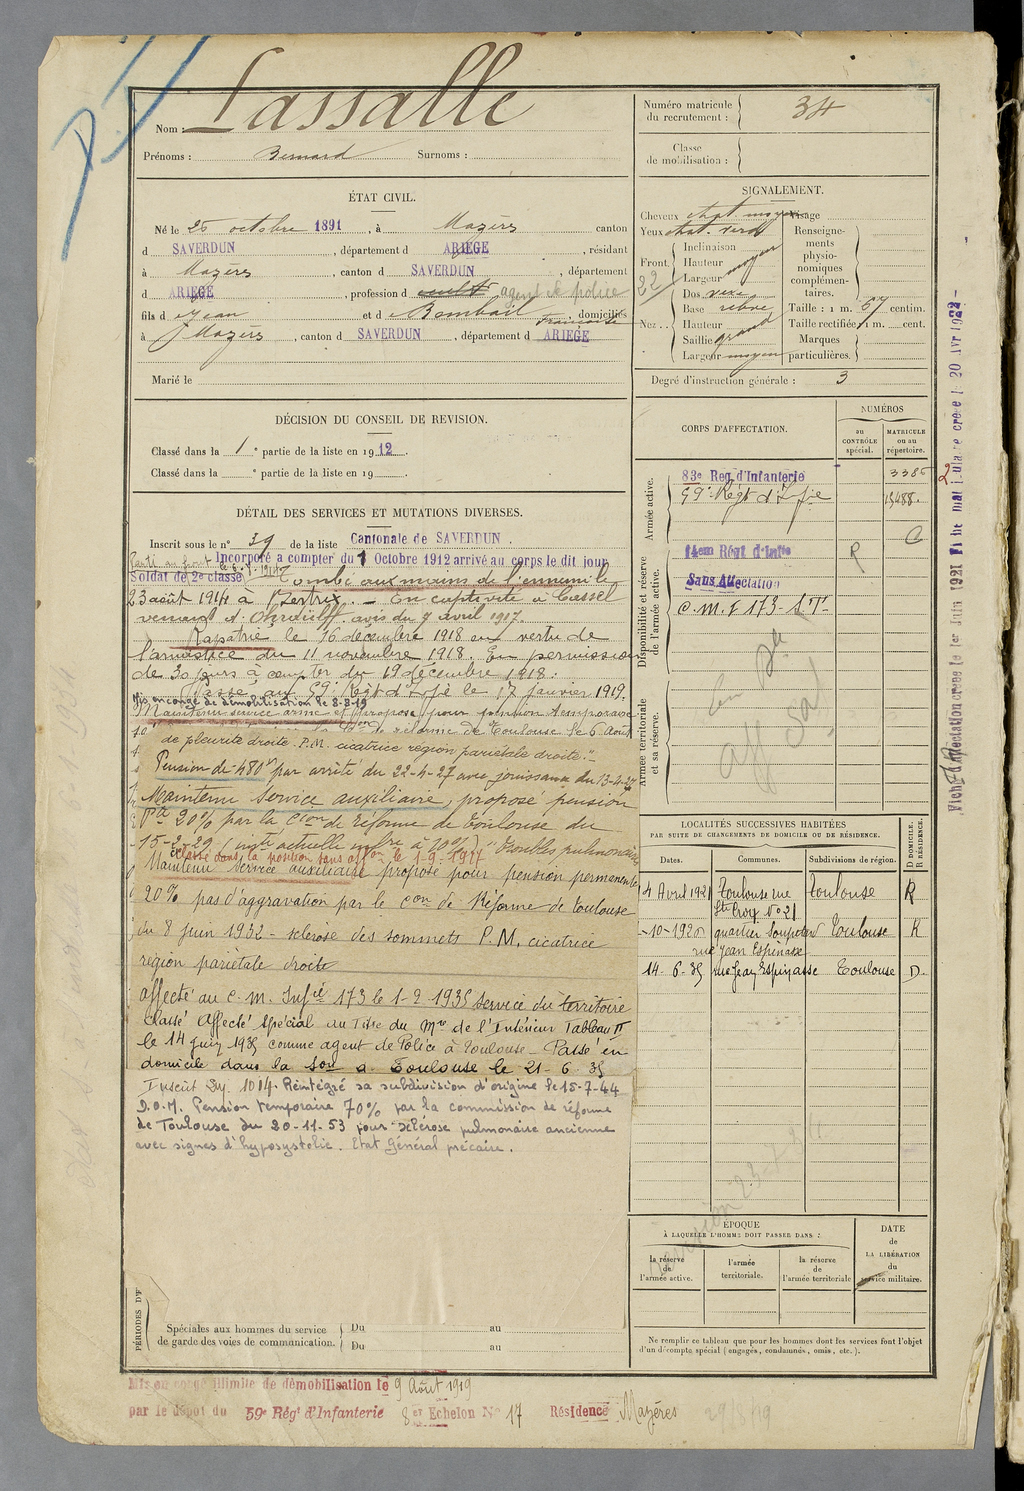 Nom : Lassalle
Prénoms : Bernard Surnoms :
ÉTAT CIVIL.
Né le 25 octobre 1891, à Mazères canton
d SAVERDUN, département d ARIÈGE, résidant
à Mazères, canton d SAVERDUN, département
d ARIÈGE, profession d agent de police
fils d Jean et d Bombail Françoise domiciliés
à Mazères, canton d SAVERDUN, département d ARIÈGE
Marié le
DÉCISION DU CONSEIL DE REVISION.
Classé dans la 1e partie de la liste en 1912.
Classé dans la e partie de la liste en 19
DÉTAIL DES SERVICES ET MUTATIONS DIVERSES.
Inscrit sous le n° 39 de la liste Cantonale de SAVERDUN.
Incorporé a compter du 1 Octobre 1912 arrivé au corps le dit jour
Soldat de 2e classe Tombé aux mains de l'ennemi le
23 août 1914 à Bertrix. — En captivité à Cassel
venant d' Ohrdruff. avis du 7 avril 1917.
Rapatrié le 16 décembre 1918 en vertu de
l'armistice du 11 novembre 1918. En permission
de 30 jours à compter du 19 décembre 1918.
Passé au 59e Régt d'Infie le 17 janvier 1919.
Mis en congé de démobilisation le 8-8-19
Maintenu service armé et proposé pour pension temporaire
de réforme de Toulouse le 6 Août
de pleurite droite. P.M. cicatrice région pariétale droite."
Pension de 480f par arrêté du 22-4-27 avec jouissance du 13-4-27
Maintenu Service auxiliaire, proposé pension
Pte 20% par la Cion de réforme de Toulouse du
15-2-29 (invté actuelle infre à 10%) "troubles pulmonaires
Classé dans la position sans affon le 1-9-1927
Maintenu Service auxiliaire proposé pour pension permanente
20% pas d'aggravation par la Con de Réforme de Toulouse
du 8 juin 1932 - sclérose des sommets P.M. cicatrice
région pariétale droite
affecté au C.M. Infie 173 le 1-2-1935 Service du territoire
Classé Affecté Spécial au Titre du Mre de l'Intérieur Tableau II
le 14 juin 1935 comme agent de Police à Toulouse - Passé en
domicile dans la Son de Toulouse le 21-6-35
Inscrit 1014. Réintégré sa subdivision d'origine le 15-7-44
D.O.M. Pension temporaire 70% par la commission de réforme
de Toulouse du 20-11-53 pour sclérose pulmonaire ancienne
avec signes d'hyposystolie. Etat Général précaire.
PÉRIODES D'
Spéciales aux hommes du service
de garde des voies de communication.
Du au
Du au
Mis en congé illimité de démobilisation le 9 Août 1919
par le dépôt du 59e Régt d'Infanterie 8er Echelon No 17 Résidence Mazères 29/8/19
Numéro matricule
du recrutement : 34
Classe
de mobilisation :
SIGNALEMENT.
Cheveux chat. moyen
Yeux chat. verd
Front.
Inclinaison
Hauteur moyen
Largeur
Nez..
Dos vexe
Base
Hauteur
Saillie grand
Largeur moyen
Visage
Renseigne-
ments
physio-
nomiques
complémen-
taires.
Taille : 1 m. 57 centim.
Taille rectifiée : 1 m. cent.
Marques
particulières.
Degré d'instruction générale : 3
CORPS D'AFFECTATION.
NUMÉROS
au
CONTRÔLE
spécial.
MATRICULE
ou au
répertoire.
Armée active.
83e Reg. d'Infanterie 3385
59e Régt d'Infie 15488
Disponibilité et réserve
de l'armée active.
14em Régt d'Infie R
Sans Affectation
C.M.I 173 - S.T.
Armée territoriale
et sa réserve.
aff sal
LOCALITÉS SUCCESSIVES HABITÉES
PAR SUITE DE CHANGEMENTS DE DOMICILE OU DE RÉSIDENCE.
Dates. Communes. Subdivisions de région. D DOMICILE. R RÉSIDENCE.
4 Avril 1921 Toulouse rue Toulouse R
Ste Croix No 21
-10-1926 quartier Soupetard Toulouse R
rue Jean Espinasse
14-6-35 rue Jean Espinasse Toulouse D.
ÉPOQUE
À LAQUELLE L'HOMME DOIT PASSER DANS :
la réserve
de
l'armée active.
l'armée
territoriale.
la réserve
de
l'armée territoriale
DATE
de
LA LIBÉRATION
du
service militaire.
Ne remplir ce tableau que pour les hommes dont les services font l'objet
d'un décompte spécial (engagés, condamnés, omis, etc.).